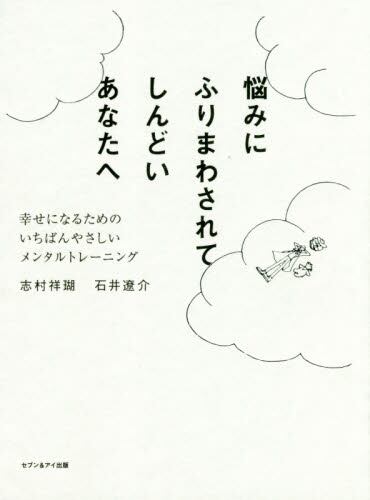 悩みに
ふりまわされて
しんどい
あなたへ
幸せになるための
いちばんやさしい
メンタルトレーニング
志村祥瑚 石井遼介
セブン&アイ出版